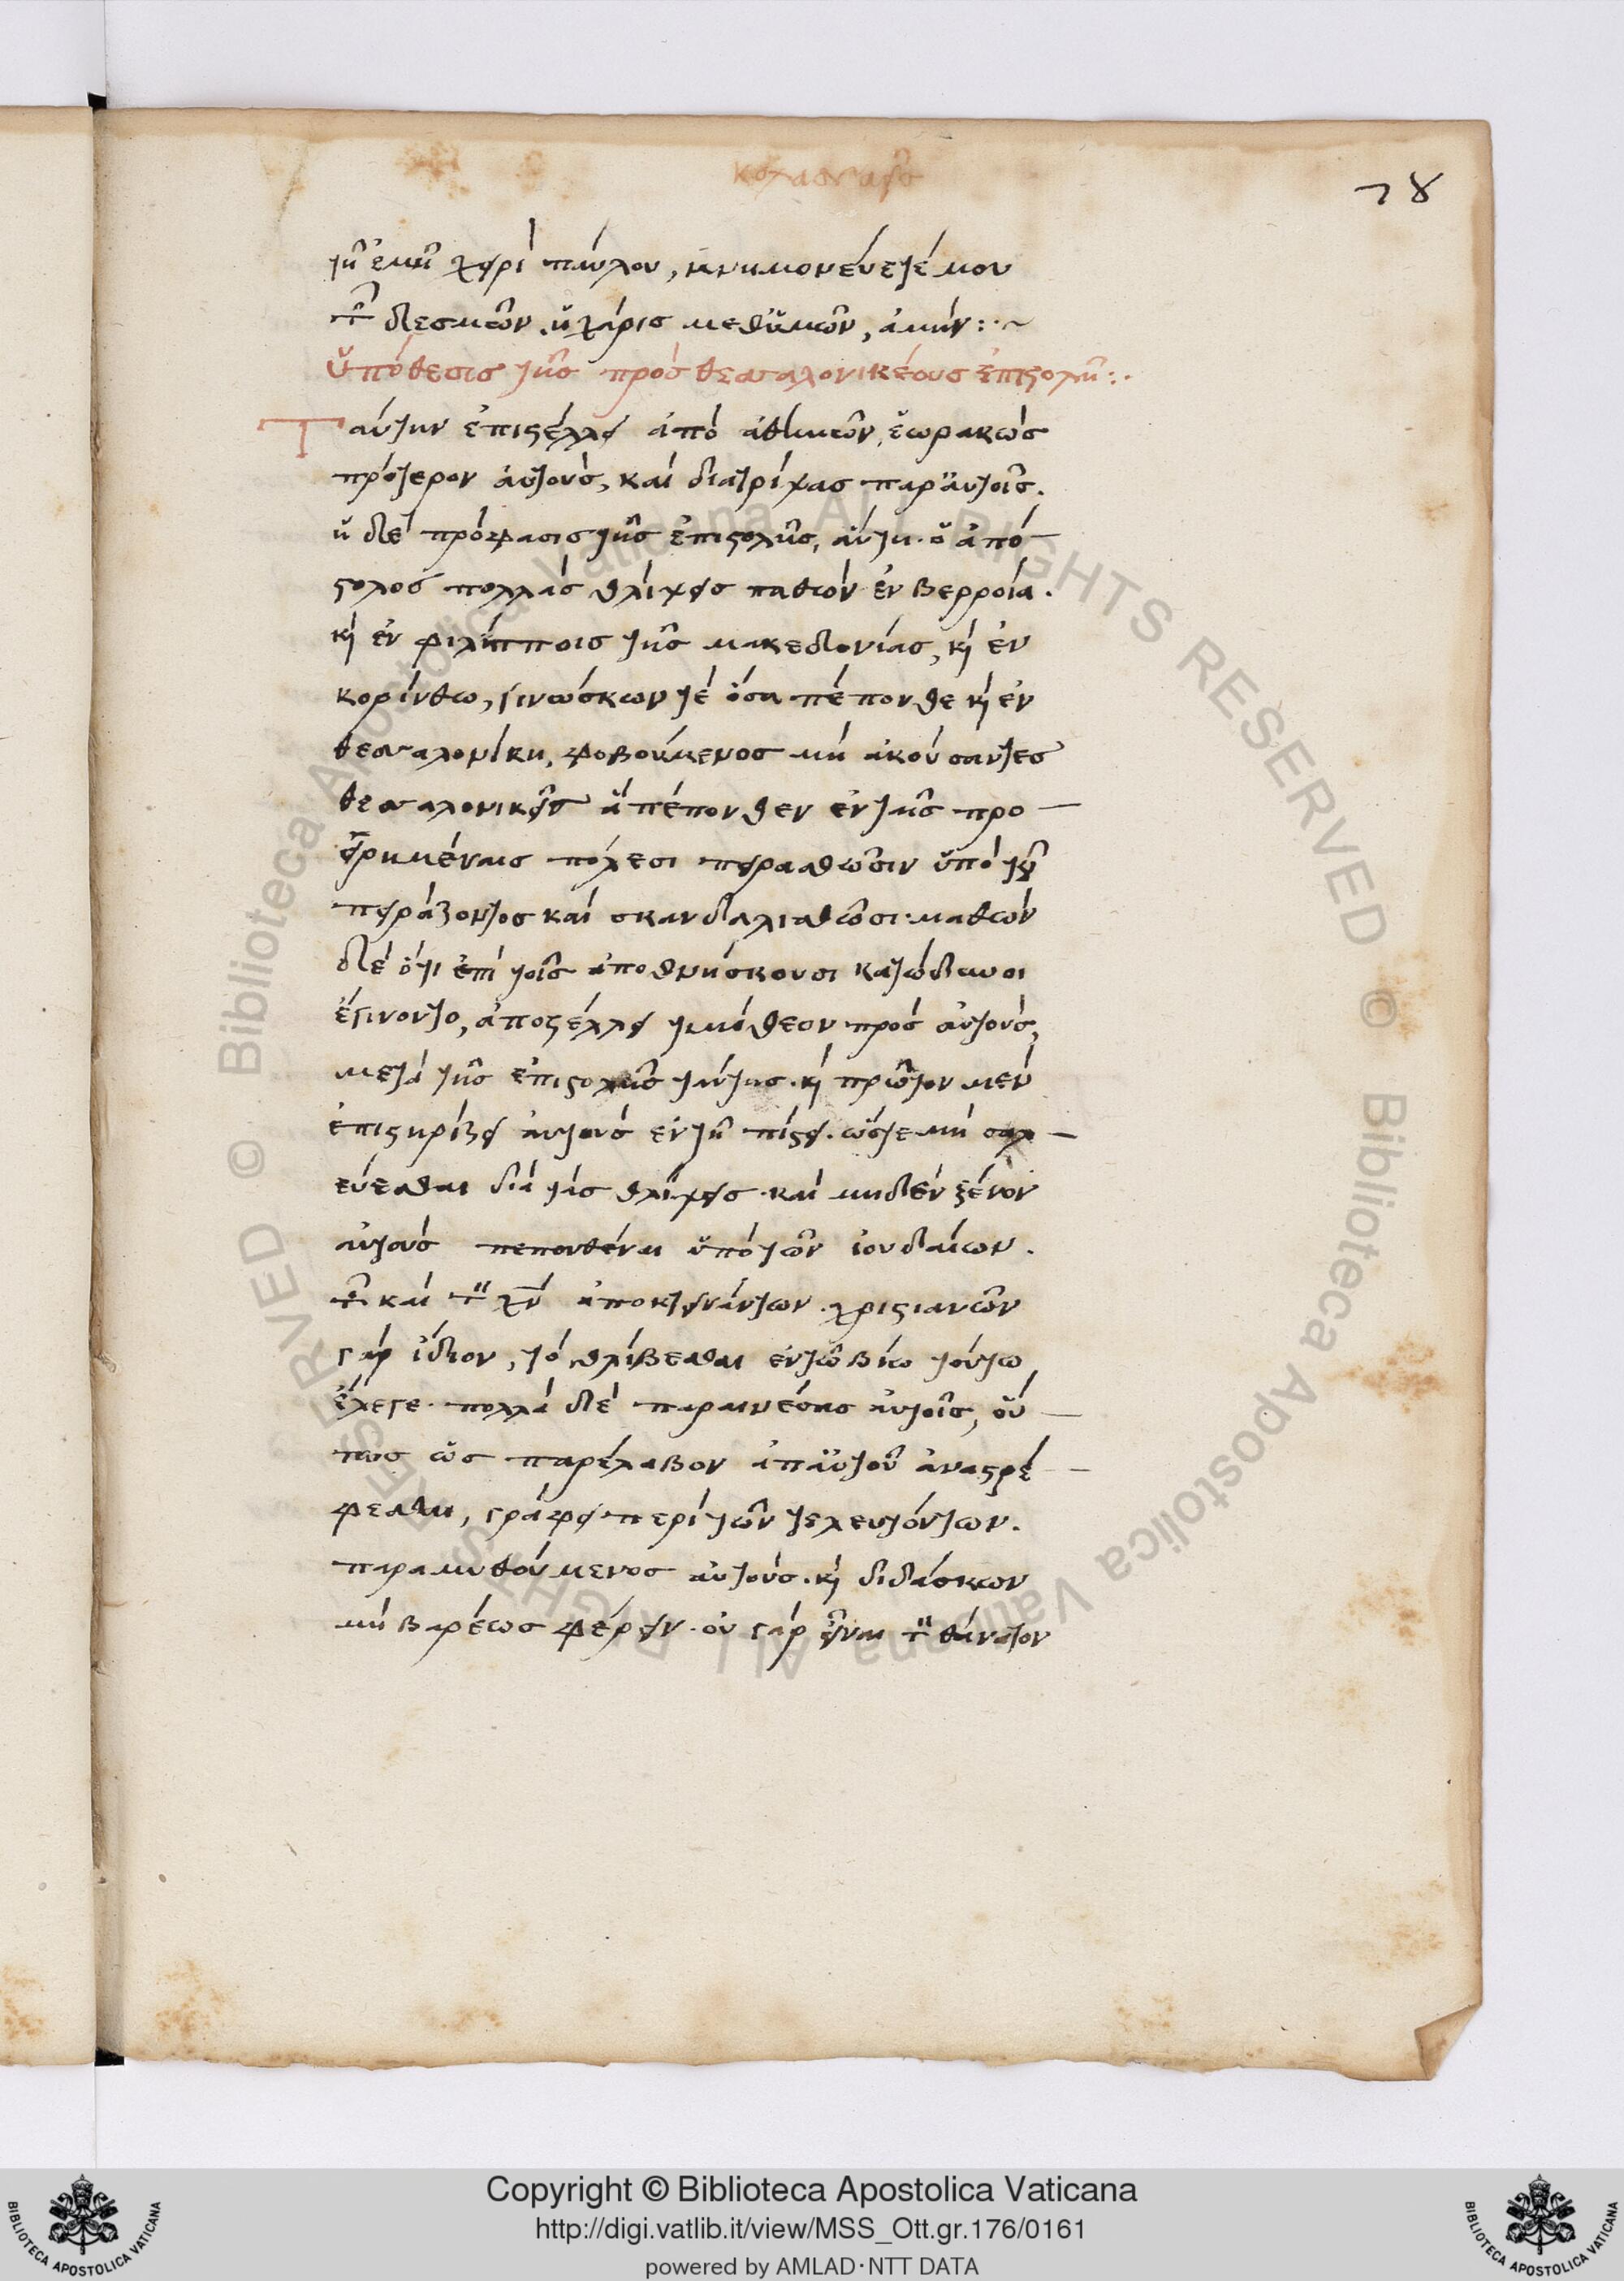 κολασσαεῖς
78
τῆ ἐμῆ χειρὶ παύλου, μνημονεύετέ μου
τῶν δεσμῶν. ἡ χάρις μεθ ὑμῶν, ἀμήν:~
ὑπόθεσις τῆς πρὸς θεσσαλονικέους ἐπιστολῆ:.
Ταύτην ἐπιστέλλει ἀπὸ ἀθηνῶν, ἑωρακὼς
πρότερον αὐτοὺς, καὶ διατρίψας παρ αὐτοῖς.
ἡ δὲ πρόφασις τῆς ἐπιστολῆς, αὕτη. ὁ ἀπό
στολος πολλὰς θλίψεις παθὼν ἐν βερροία.
κὶ ἐν φιλίπποις τῆς μακεδονίας, κὶ ἐν
κορίνθω, γινώσκων τὲ ὅσα πέπονθε κὶ ἐν
θεσσαλονίκη, φοβούμενος μὴ ἀκούσαντες
θεσσαλονικεῖς ἃ πέπονθεν ἐν ταῖς προ
ειρημέναις πόλεσι πειρασθῶσιν ὑπὸ τοῦ
πειράζοντος καὶ σκανδαλισθῶσι. μαθὼν
δὲ ὅτι ἐπὶ τοῖς ἀποθνήσκουσι κατώδυνοι
ἐγίνοντο, ἀποστέλλει τιμόθεον πρὸς αὐτοὺς,
μετὰ τῆς ἐπιστολῆς ταύτης. κὶ πρῶτον μὲν
ἐπιστηρίζει αὐτοὺς ἐν τῆ πίστει. ὥστε μὴ σαλ
εύεσθαι διὰ τὰς θλίψεις. καὶ μηδὲν ξένον
αὐτοὺς πεπονθέναι ὑπὸ τῶν ἰουδαίων.
τῶν καὶ τὸν χν ἀποκτεινάντων. χριστιανῶν
γὰρ ἴδιον, τὸ θλίβεσθαι ἐν τῶ βίω τούτω
ἔλεγε. πολλὰ δὲ παραινέσας αὐτοῖς, οὕ
τως ὡς παρέλαβον ἀπ αὐτοῦ ἀναστρέ
φεσθαι, γράφει περὶ τῶν τελευτόντων.
παραμυθούμενος αὐτοὺς. κὶ διδάσκων
μὴ βαρέως φέρειν. οὐ γὰρ εἶναι τὸν θάνατον
Copyright © Biblioteca Apostolica Vaticana
http://digi.vatlib.it/view/MSS_Ott.gr.176/0161
powered by AMLAD·NTT DATA